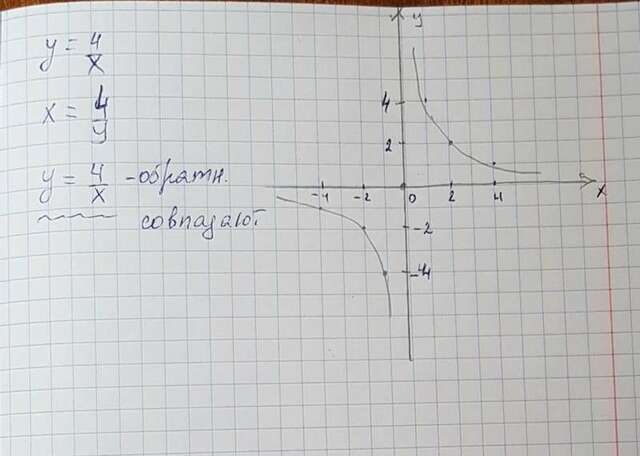 y = 4/x
x = 4/y
y = 4/x - обратн.
совпадают
y
4
2
-4 -2 0 2 4 x
-2
-4